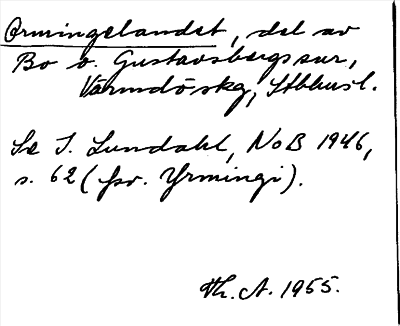 Ormingelandet, del av
Bo o. Gustavsbergs snr,
Värmdö skg, Stbhusl.
Se I. Lundahl, NoB 1946,
s. 62 (fsv. Yrmingi).
Th. A. 1955.